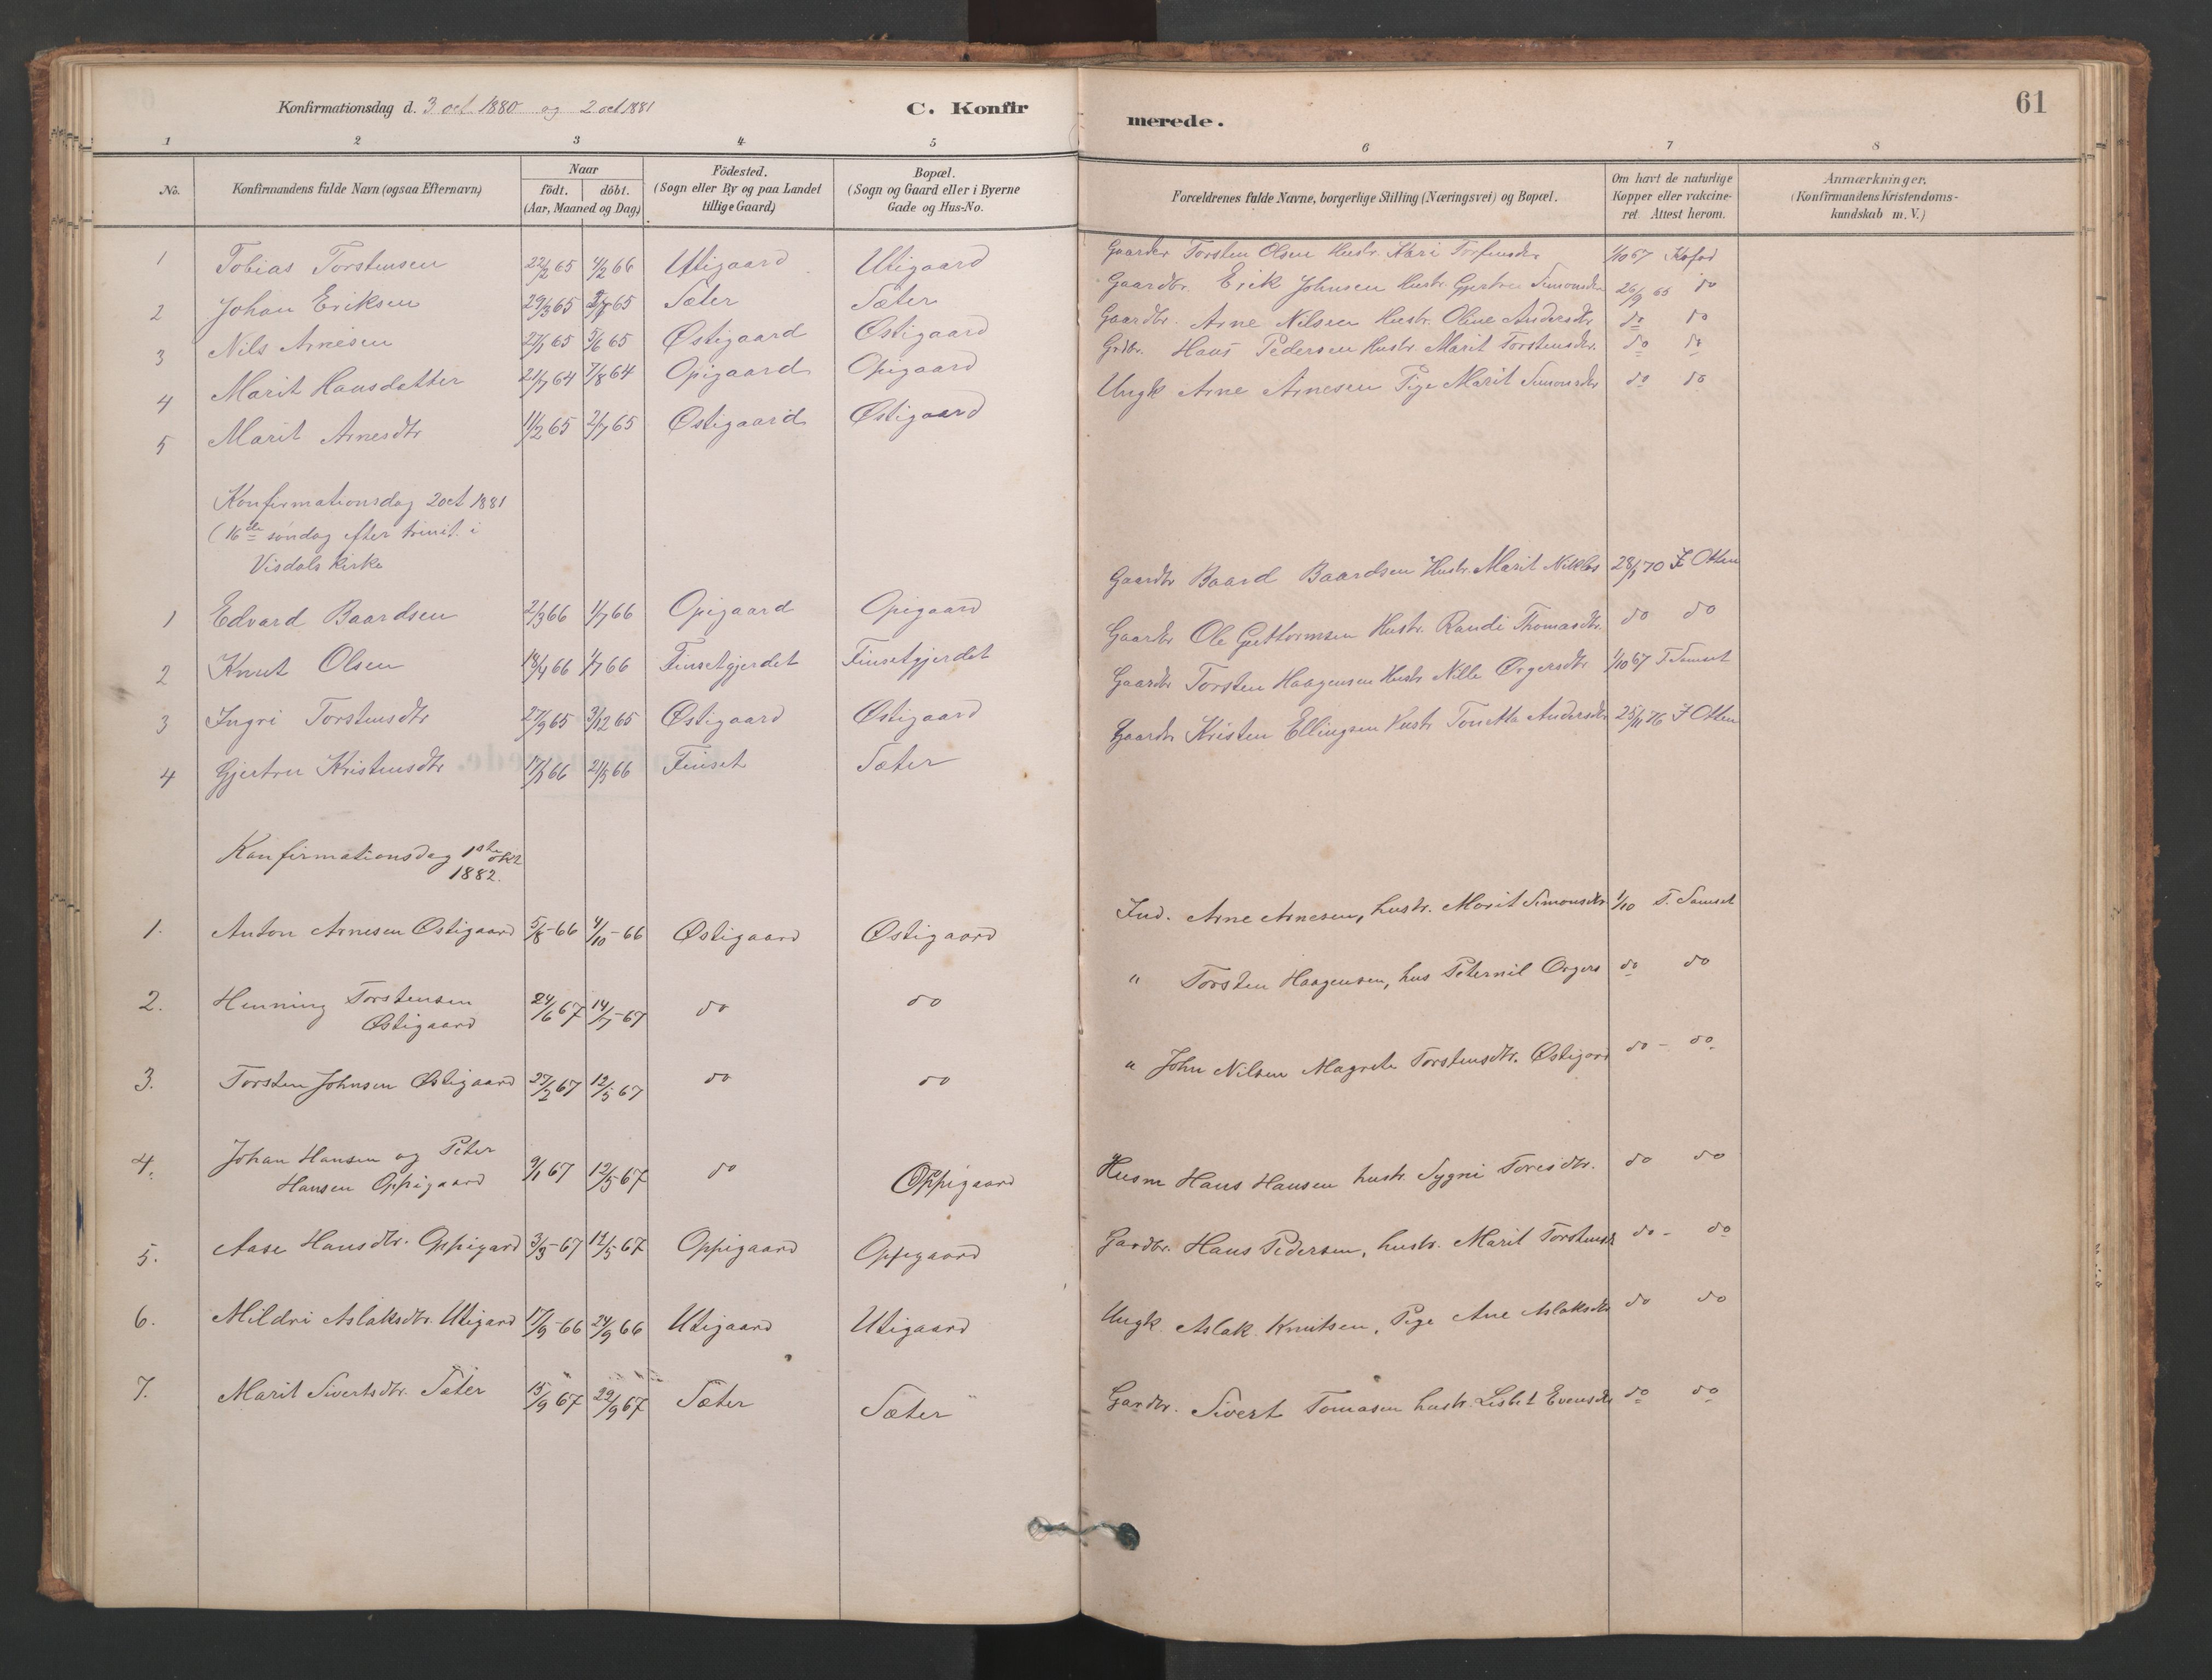 Konfirmationsdag d. 3 oct. 1880 og 2 oct 1881
C. Konfirmerede.
61
1 2 3 4 5 6 7 8
No.
Konfirmandens fulde Navn (ogsaa Efternavn)
Naar
födt. döbt.
(Aar, Maaned og Dag)
Födested.
(Sogn eller By og paa Landet
tillige Gaard)
Bopæl.
(Sogn og Gaard eller i Byerne
Gade og Hus-No.
Forældrenes fulde Navne, borgerlige Stilling (Næringsvei) og Bopæl.
Om havt de naturlige
Kopper eller vakcine-
ret Attest herom.
Anmærkninger,
(Konfirmandens Kristendoms-
kundskab m. V.)
1 Tobias Torstensen 22/2 65 4/2 66 Utigaard Utigaard Torsten Olsen Hustr. Mari 1/10 67 Kofod
2 Johan Eriksen 29/3 65 65 Sæter Sæter Gaardbr. Erik Johnsen Hustr. Gjertru Simonsdr 26/9 65 do
3 Nils Arnesen 65 5/6 65 Østigaard Østigaard Gaardbr. Arne Nilsen Hustr. Oline Andersdtr do do
4 Marit Hansdatter 64 7/8 64 Opigaard Opigaard Grdbr. Hans Pedersen Hustr. Marit Torstensdtr. do do
5 Marit Arnesdtr 11/2 65 2/7 65 Østigaard Østigaard Ungk Arne Arnesen Pige Marit Simonsdtr do do
Konfirmationsdag 2 oct 1881
(16de søndag efter trinit. i
Visdals Kirke
1 Edvard Baardsen 2/3 66 1/7 66 Opigaard Opigaard Gaardbr Baard Baardsen Hustr. Marit 70 Otten
2 Knut Olsen 18/4 66 1/7 66 Finsetgjerdet Finsetgjerdet Gaardbr Ole Guttormsen Hustr. Randi Thomasdtr. do do
3 Ingri Torstensdtr 27/9 65 3/12 65 Østigaard Østigaard Gaardbr Torsten Haagensen Hustr Nille Orgersdtr 1/10 67 T. Samset
4 Gjertru Kristensdtr 66 21/5 66 Finset Sæter Gaardbr Kristen Ellingsen Hustr Tonetta Andersdtr 25/11 76 Otten
Konfirmationsdag 1ste oktr
1882.
1. Anton Arnesen Østigaard 5/8-66 4/10-66 Østigaard Østigaard Ind. Arne Arnesen, hustr. Marit Simonsdtr 1/10 T. Samset
2. Henning Torstensen
Østigaard 24/6 67 14/7-67 do do " Torsten Haagensen, hus Peternil Orgers do do
3. Torsten Johnsen Østigaard 27/2 67 12/5 67 do do " John Nilsen Magrete Torstensdtr. Østigard do - do
4. Johan Hansen og Peter
Hansen Oppigaard 9/1 67 12/5 67 do Oppigaard Husm Hans Hansen hustr. Sygni Toresdtr. do do
5. Aase Hansdtr. Oppigard 3/3-67 12/5 67 Oppigaard Oppigaard Gardbr. Hans Pedersen, hustr. Marit Torstensdr do - do
6. Mildri Aslaksdtr. Utigard 17/9-66 24/9 66 Utigaard Utigaard Ungk. Aslak Knutsen, Pige Ane Aslaksdtr do do
7. Marit Sivertsdtr. Sæter 15/9 67 22/9 67 Sæter Sæter Gardbr. Sivert Tomasen hustr. Lisbet Evensdtr do do